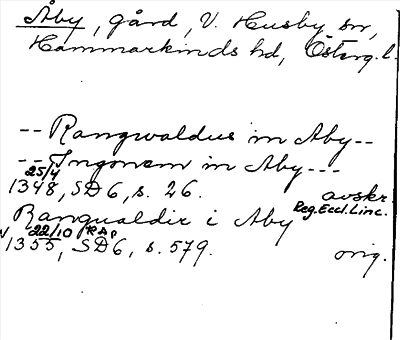 Åby, gård, V. Husby sn,
Hammarkinds hd, Österg. l.
-- Rangwaldus in Aby --
-- Ingonem in Aby ---
25/4
1348, SD6, s. 26. avskr.
Reg. Eccl. Linc.
Rangualdir i Aby
22/10 RAp
1355, SD6, s. 579. orig.